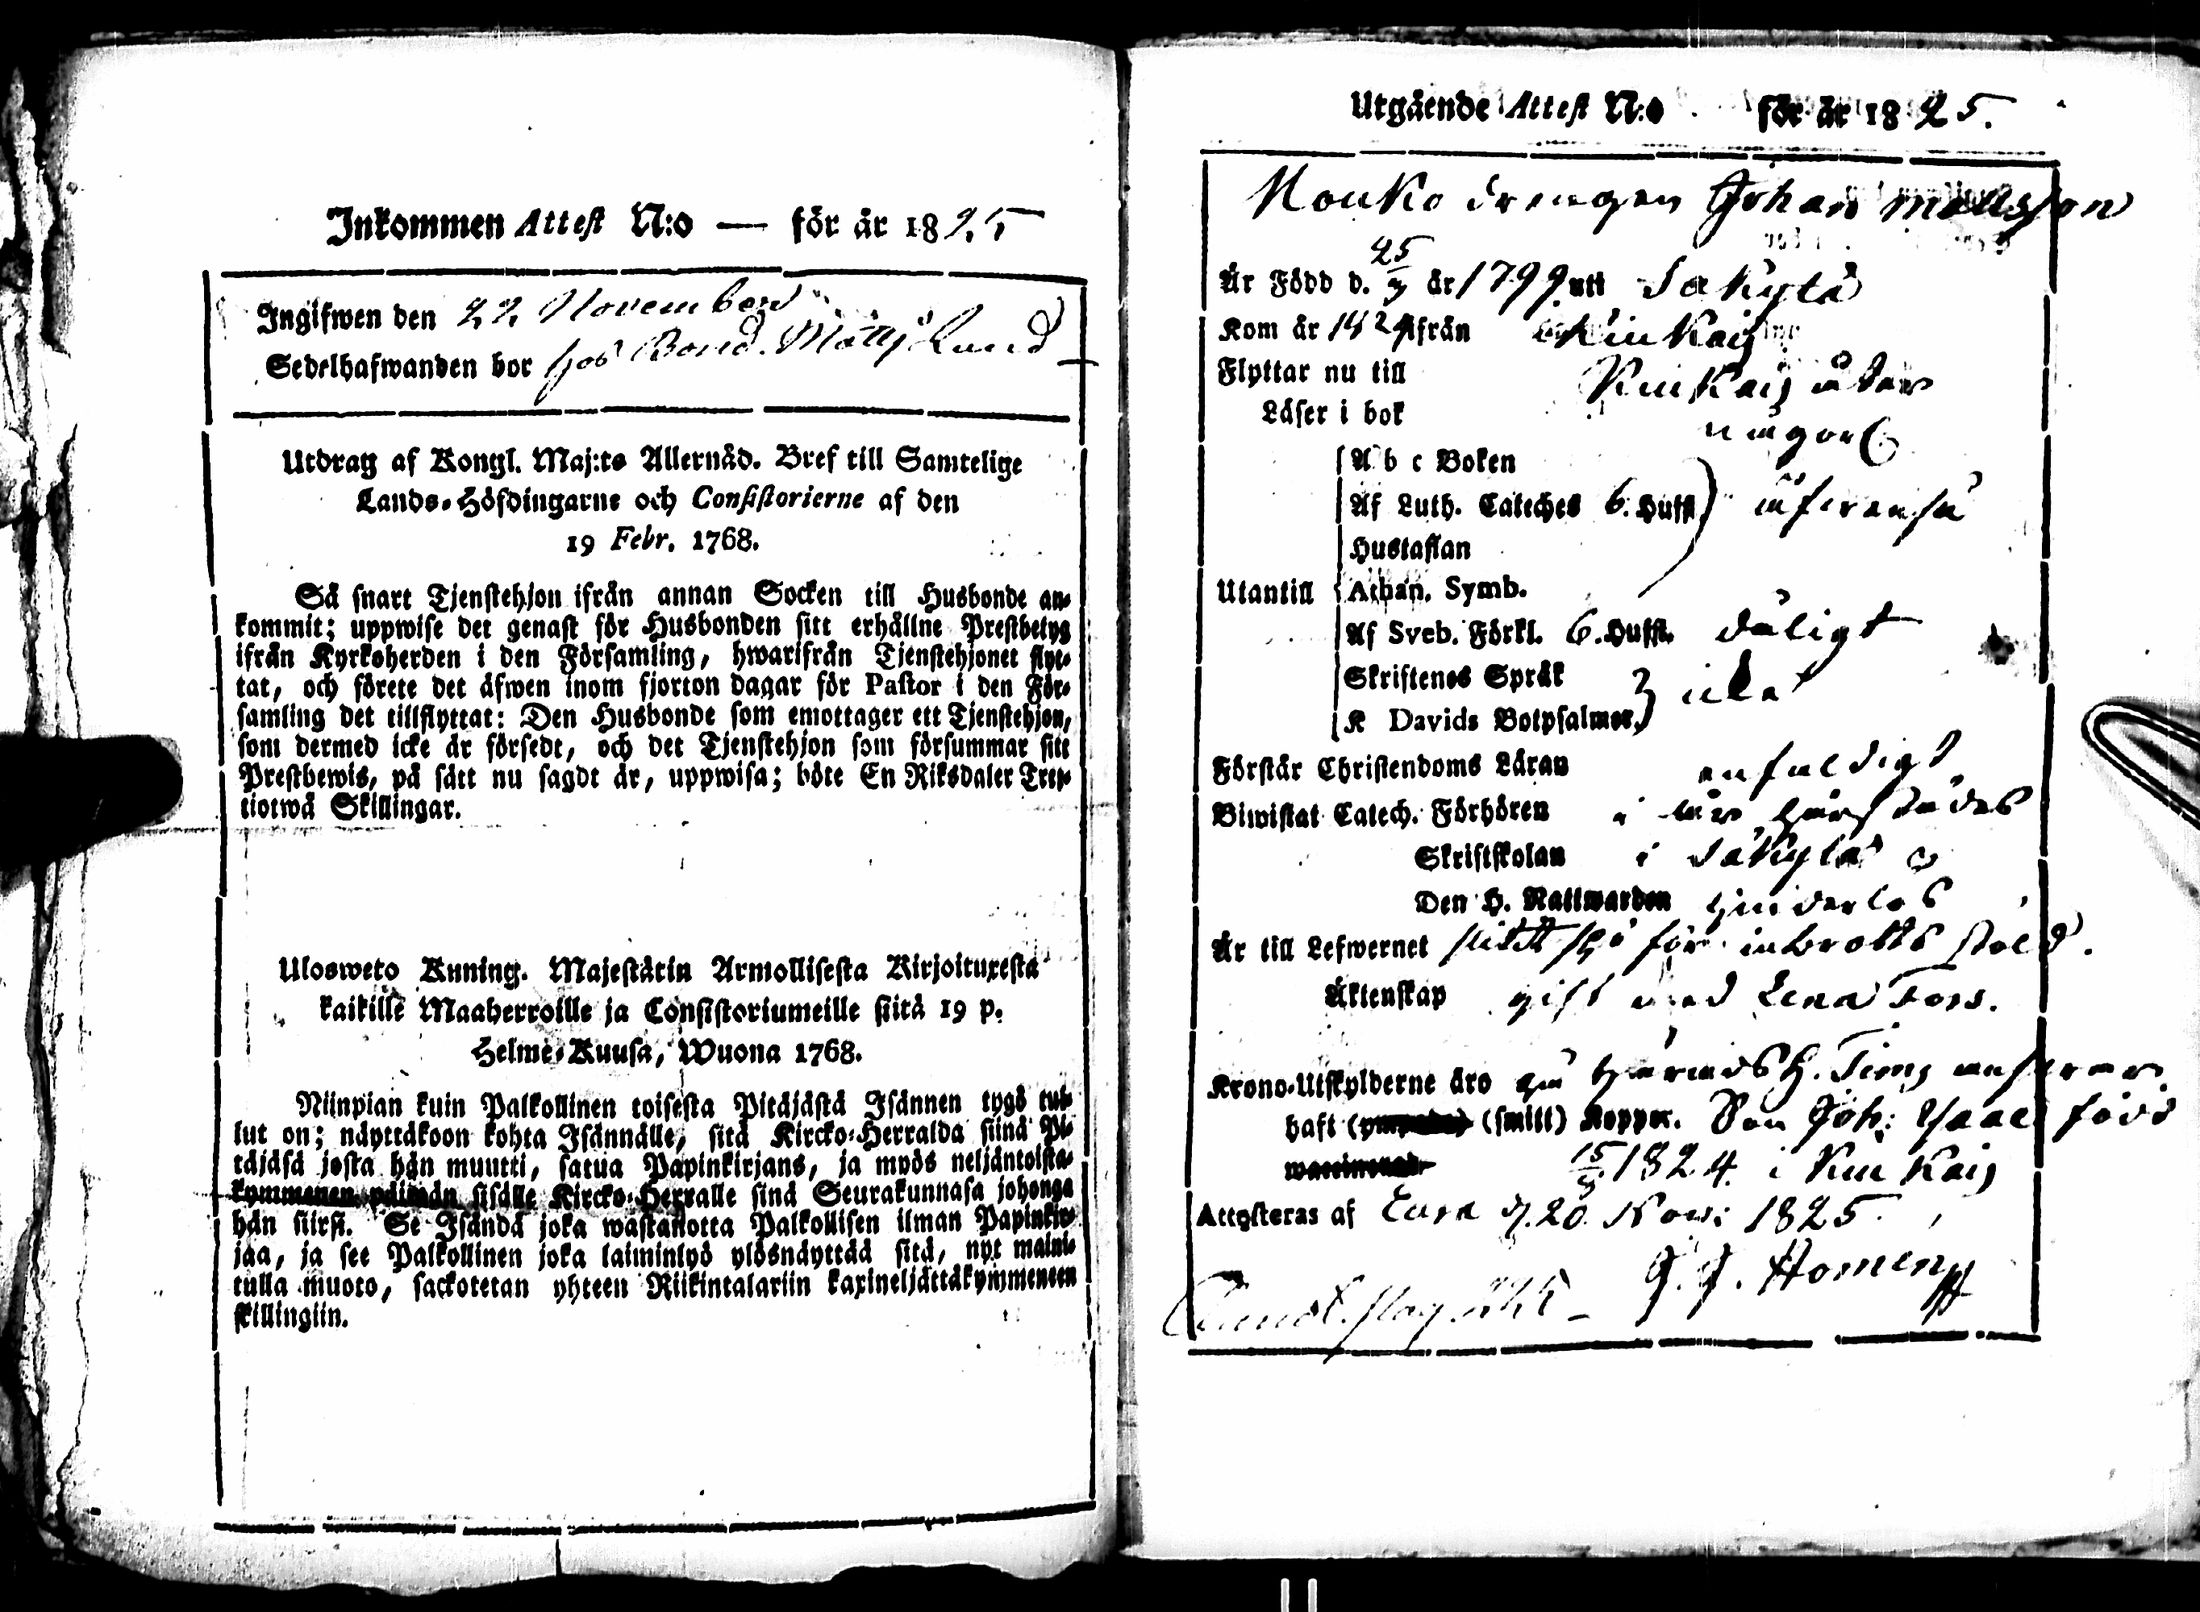 Inkommen Attest N:o — för år 1825
Ingifwen den 22 November
Sedelhafwanden bor hos Bond. Matts Lund
Utdrag af Kongl. Maj:ts Allernåd. Bref till Samtelige
Lands-Höfdingarne och Consistorierne af den
19 Febr. 1768.
Så snart Tjenstehjon ifrån annan Socken till Husbonde an-
kommit; uppwise det genast för Husbonden sitt erhållne Prestbetyg
ifrån Kyrkoherden i den Församling, hwarifrån Tjenstehjonet flyt-
tat, och förete det äfwen inom fjorton dagar för Pastor i den För-
samling det tillflyttat: Den Husbonde som emottager ett Tjenstehjon,
som dermed icke är försedt, och det Tjenstehjon som försummar sitt
Prestbewis, på sätt nu sagdt är, uppwisa; böte En Riksdaler Tret-
tiotwå Skillingar.
Ulosweto Kuning. Majestätin Armollisesta Kirjoituxesta
kaikille Maaherroille ja Consistoriumeille siitä 19 p.
Helme-Kuusa, Wuona 1768.
Niinpian kuin Palkollinen toisesta Pitäjästä Isännen tygö tul-
lut on; näyttäkoon kohta Isännälle, sitä Kircko-Herralda siinä Pi-
täjäsä josta hän muutti, saatua Papinkirjans, ja myös neljäntoista-
kymmenen päiwän sisälle Kircko-Herralle sinä Seurakunnasa johonga
hän siirsi. Se Isändä joka wastanotta Palkollisen ilman Papinkir-
jaa, ja see Palkollinen joka laiminlyö ylösnäyttää sitä, nyt maini-
tulla muoto, sackotetan yhteen Riikintalariin kaxineljättäkymmenteen
skillingiin.
Utgående Attest N:o för år 1825.
Kouko drengen Johan Mattsson
Är Född d. 25/7 år 1799 uti Säkylä
Kom år 1824 ifrån Kiukais
Flyttar nu till Kiukais åter
Läser i bok någorl.
A b c Boken
Af Luth. Cateches 6. Huffl.
Hustaflan
Utantill Athan. Symb.
Af Sveb. Förkl. 6. Huffl. dåligt
Skriftenes Språk
K Davids Botpsalmer, icke
Förstår Christendoms Läran enfaldigt
Biwistat Catech. Förhören i år härstädes
Skriftskolan i Säkylä
Den H. Nattwarden hinderlös
Är till Lefwernet för inbrotts stöld.
Äktenskap gift med Lena Fors.
Krono-Utskylderne äro
haft (ympade) (smitt) Koppor. Son Joh: Isaac född
waccinerad. 15/3 1824 i Kiukais
Attesteras af Eura d. 20 Nov: 1825
J. J. Homén